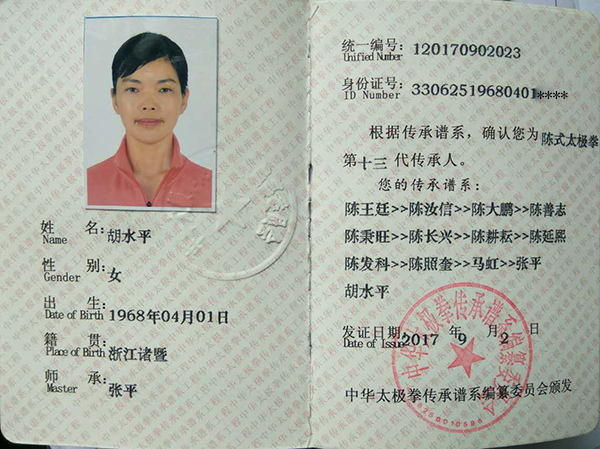 姓 名:胡水平
Name
性 别:女
Gender
出 生:1968年04月01日
Date of Birth
籍 贯:浙江诸暨
Place of Birth
师 承:张平
Master
统一编号:120170902023
Unified Number
身份证号:33062519680401****
ID Number
根据传承谱系,确认您为陈式太极拳
第十三代传承人。
您的传承谱系:
陈王廷>>陈汝信>>陈大鹏>>陈善志
陈秉旺>>陈长兴>>陈耕耘>>陈延熙
陈发科>>陈照奎>>马虹>>张平
胡水平
发证日期:2017年9月2日
Date of Issue
中华太极拳传承谱系编纂委员会颁发
中华太极拳传承谱系编纂委员会